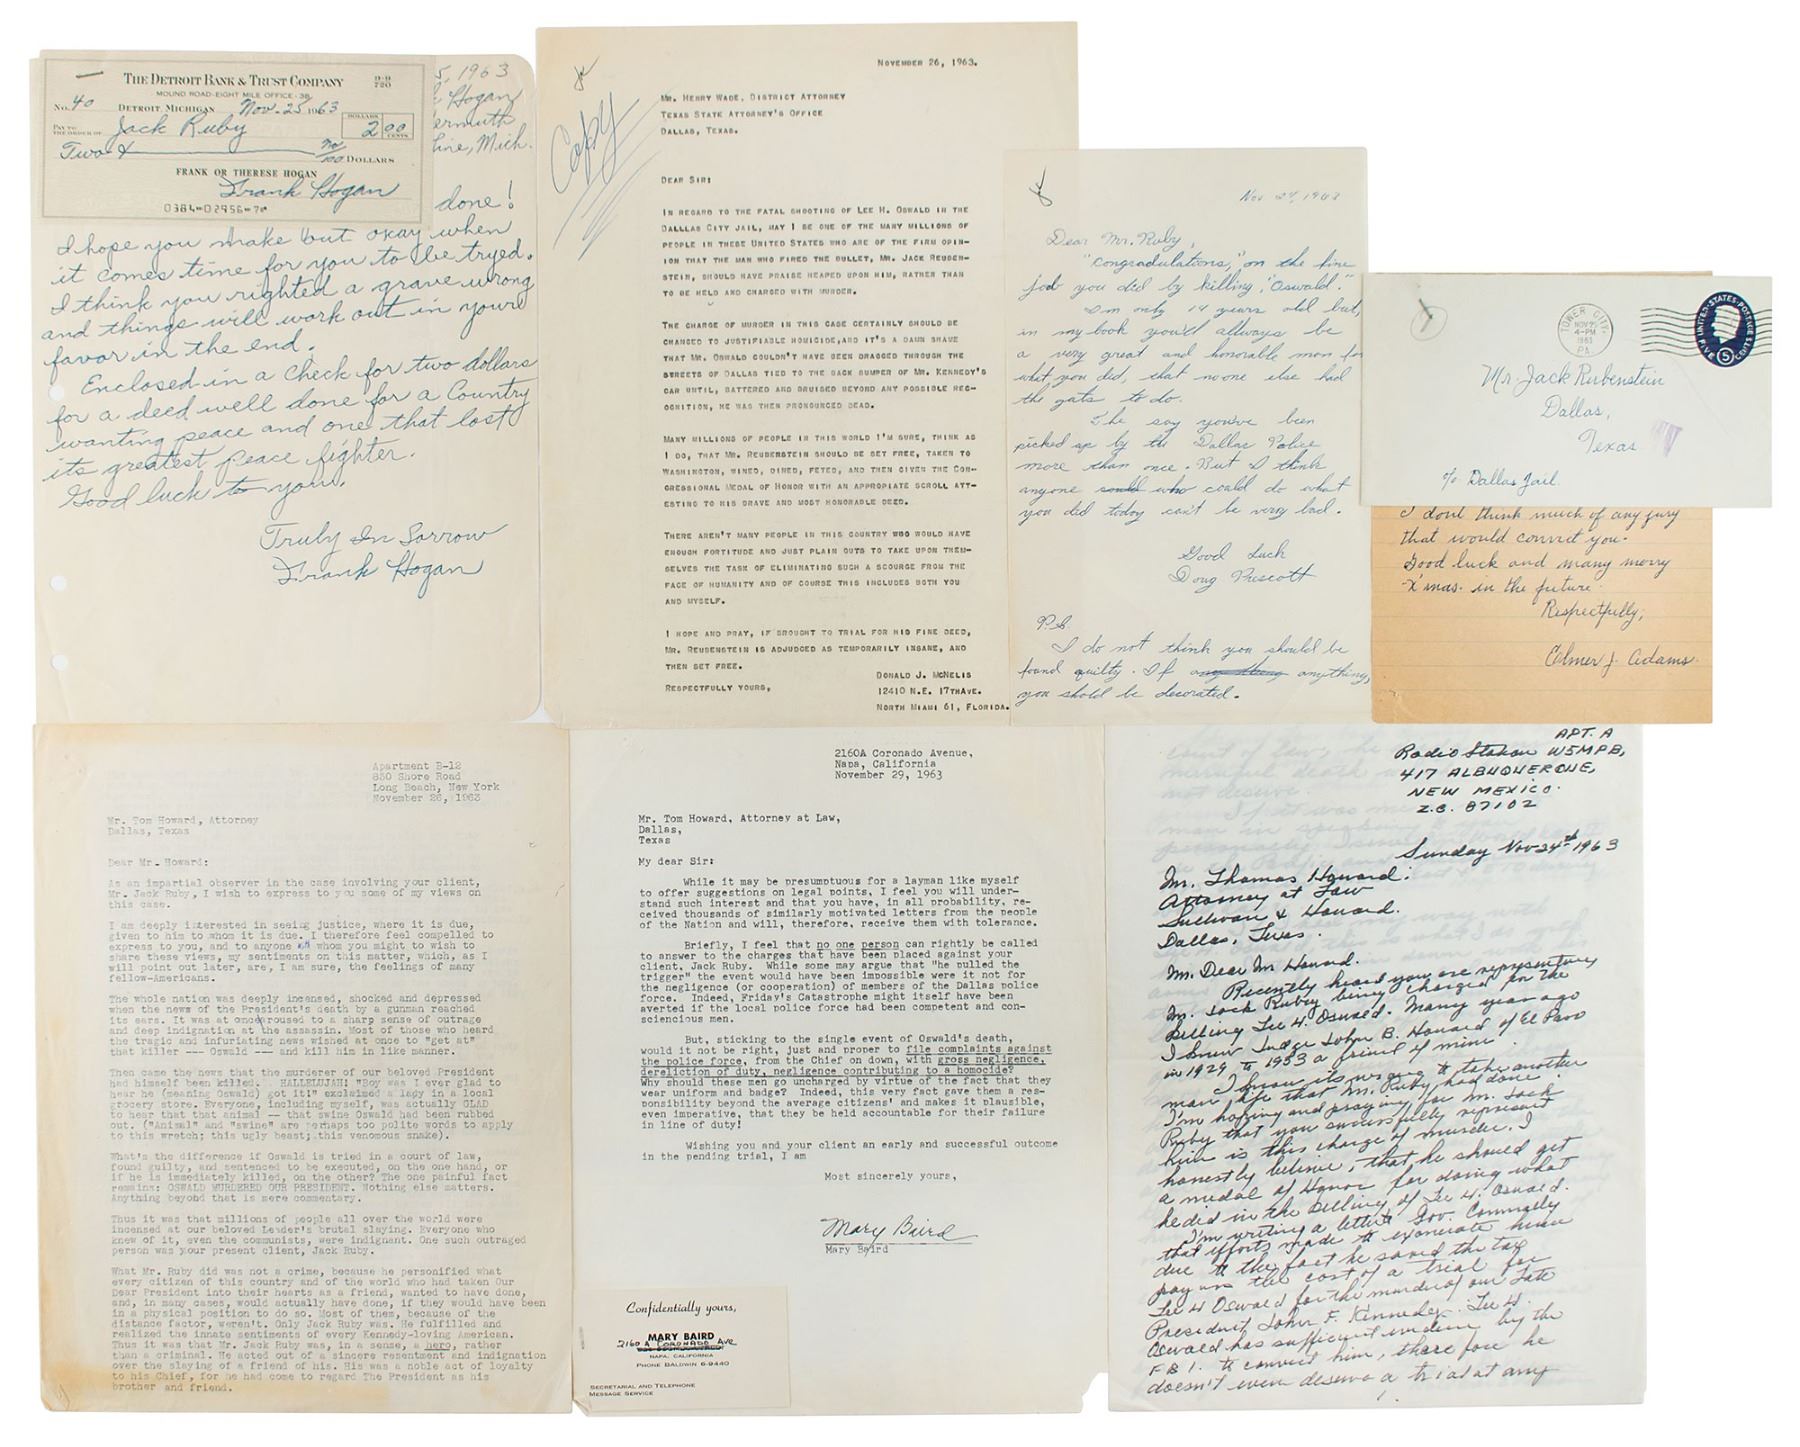 THE DETROIT BANK & TRUST COMPANY
9-9
720
MOUND ROAD-EIGHT MILE OFFICE-38
No. 40 DETROIT, MICHIGAN Nov. 25 1963
PAY TO
THE ORDER OF Jack Ruby
DOLLARS
2 00
CENTS
Two & no/100 DOLLARS
FRANK OR THERESE HOGAN
Frank Hogan
5, 1963
Hogan
ermuth
line, Mich.
done!
I hope you make out okay when
it comes time for you to be tryed.
I think you righted a grave wrong
and things will work out in your
favor in the end.
Enclosed in a check for two dollars
for a deed well done for a Country
wanting peace and one that lost
its greatest peace fighter.
Good luck to you.
Truly In Sorrow
Frank Hogan
Copy
NOVEMBER 26, 1963.
MR. HENRY WADE, DISTRICT ATTORNEY
TEXAS STATE ATTORNEY'S OFFICE
DALLAS, TEXAS.
DEAR SIR:
IN REGARD TO THE FATAL SHOOTING OF LEE H. OSWALD IN THE
DALLLAS CITY JAIL, MAY I BE ONE OF THE MANY MILLIONS OF
PEOPLE IN THESE UNITED STATES WHO ARE OF THE FIRM OPIN-
ION THAT THE MAN WHO FIRED THE BULLET, MR. JACK REUBEN-
STEIN, SHOULD HAVE PRAISE HEAPED UPON HIM, RATHER THAN
TO BE HELD AND CHARGED WITH MURDER.
THE CHARGE OF MURDER IN THIS CASE CERTAINLY SHOULD BE
CHANGED TO JUSTIFIABLE HOMICIDE,AND IT'S A DAMN SHAME
THAT MR. OSWALD COULDN'T HAVE BEEN DRAGGED THROUGH THE
STREETS OF DALLAS TIED TO THE BACK BUMPER OF MR. KENNEDY'S
CAR UNTIL, BATTERED AND BRUISED BEYOND ANY POSSIBLE REC-
OGNITION, HE WAS THEN PRONOUNCED DEAD.
MANY MILLIONS OF PEOPLE IN THIS WORLD I'M SURE, THINK AS
I DO, THAT MR. REUBENSTEIN SHOULD BE SET FREE, TAKEN TO
WASHINGTON, WINED, DINED, FETED, AND THEN GIVEN THE CON-
GRESSIONAL MEDAL OF HONOR WITH AN APPROPIATE SCROLL ATT-
ESTING TO HIS BRAVE AND MOST HONORABLE DEED.
THERE AREN'T MANY PEOPLE IN THIS COUNTRY WHO WOULD HAVE
ENOUGH FORTITUDE AND JUST PLAIN GUTS TO TAKE UPON THEM-
SELVES THE TASK OF ELIMINATING SUCH A SCOURGE FROM THE
FACE OF HUMANITY AND OF COURSE THIS INCLUDES BOTH YOU
AND MYSELF.
I HOPE AND PRAY, IF BROUGHT TO TRIAL FOR HIS FINE DEED,
MR. REUBENSTEIN IS ADJUDGED AS TEMPORARILY INSANE, AND
THEN SET FREE.
RESPECTFULLY YOURS,
DONALD J. MCNELIS
12410 N.E. 17THAVE.
NORTH MIAMI 61, FLORIDA.
Nov 24, 1963
Dear Mr. Ruby,
"Congradulations," on the fine
job you died by killing, "Oswald."
I'm only 14 years old but,
in my book you'd allways be
a very great and honorable man for
what you did, that no one else had
the guts to do.
The say you've been
picked up by the Dallas Police
more than once. But I think
anyone could who could do what
you did today can't be very bad.
Good Luck
Doug Prescott
P.S.
I do not think you should be
found quilty. If anything anything,
you shold be decorated.
TOWER CITY
NOV
4-PM
1963
PA.
UNITED STATES POSTAGE
FIVE 5 CENTS
Mr. Jack Rubenstein
Dallas,
Texas
c/o Dallas Jail.
I dont think much of any jury
that would convict you.
Good luck and many merry
X'mas. in the future.
Respectfully,
Elmer J. Adams.
Apartment B-12
830 Shore Road
Long Beach, New York
November 26, 1963
Mr. Tom Howard, Attorney
Dallas, Texas
Dear Mr. Howard:
As an impartial observer in the case involving your client,
Mr. Jack Ruby, I wish to express to you some of my views on
this case.
I am deeply interested in seeing justice, where it is due,
given to him to whom it is due. I therefore feel compelled to
express to you, and to anyone whom you might to wish to
share these views, my sentiments on this matter, which, as I
will point out later, are, I am sure, the feelings of many
fellow-Americans.
The whole nation was deeply incensed, shocked and depressed
when the news of the President's death by a gunman reached
its ears. It was at once aroused to a sharp sense of outrage
and deep indignation at the assassin. Most of those who heard
the tragic and infuriating news wished at once to "get at"
that killer --- Oswald --- and kill him in like manner.
Then came the news that the murderer of our beloved President
had himself been killed. HALLELUJAH! "Boy was I ever glad to
hear he (meaning Oswald) got it!" exclaimed a lady in a local
grocery store. Everyone, including myself, was actually GLAD
to hear that that animal -- the swine Oswald had been rubbed
out. ("Animal" and "swine" are perhaps too polite words to apply
to this wretch; this ugly beast; this venomous snake).
What's the difference if Oswald is tried in a court of law,
found guilty, and sentenced to be executed, on the one hand, or
if he is immediately killed, on the other? The one painful fact
remains: OSWALD MURDERED OUR PRESIDENT. Nothing else matters.
Anything beyond that is mere commentary.
Thus it was that millions of people all over the world were
incensed at our beloved Leader's brutal slaying. Everyone who
knew of it, even the communists, were indignant. One such outraged
person was your present client, Jack Ruby.
What Mr. Ruby did was not a crime, because he personified what
every citizen of this country and of the world who had taken Our
Dear President into their hearts as a friend, wanted to have done,
and, in many cases, would actually have done, if they would have been
in a physical position to do so. Most of them, because of the
distance factor, weren't. Only Jack Ruby was. He fulfilled and
realized the innate sentiments of every Kennedy-loving American.
Thus it was that Mr. Jack Ruby was, in a sense, a hero, rather
than a criminal. He acted out of a sincere resentment and indignation
over the slaying of a friend of his. His was a noble act of loyalty
to his Chief, for he had come to regard The President as his
brother and friend.
2160A Coronado Avenue,
Napa, California
November 29, 1963
Mr. Tom Howard, Attorney at Law,
Dallas,
Texas
My dear Sir:
While it may be presumptuous for a layman like myself
to offer suggestions on legal points, I feel you will under-
stand such interest and that you have, in all probability, re-
ceived thousands of similarly motivated letters from the people
of the Nation and will, therefore, receive them with tolerance.
Briefly, I feel that no one person can rightly be called
to answer to the charges that have been placed against your
client, Jack Ruby. While some may argue that "he pulled the
trigger" the event would have been impossible were it not for
the negligence (or cooperation) of members of the Dallas police
force. Indeed, Friday's Catastrophe might itself have been
averted if the local police force had been competent and con-
sciencious men.
But, sticking to the single event of Oswald's death,
would it not be right, just and proper to file complaints against
the police force, from the Chief on down, with gross negligence,
dereliction of duty, negligence contributing to a homocide?
Why should these men go uncharged by virtue of the fact that they
wear uniform and badge? Indeed, this very fact gave them a res-
ponsibility beyond the average citizens' and makes it plausible,
even imperative, that they be held accountable for their failure
in line of duty!
Wishing you and your client an early and successful outcome
in the pending trial, I am
Most sincerely yours,
Mary Baird
Mary Baird
Confidentially yours,
MARY BAIRD
2160 A CORONADO AVE
NAPA, CALIFORNIA
PHONE BALDWIN 6-9440
SECRETARIAL AND TELEPHONE
MESSAGE SERVICE
APT. A
Radio Station W5MPB,
417 ALBUQUERQUE,
NEW MEXICO.
Z.C. 87102
Sunday Nov 24th 1963
Mr. Thomas Howard:
Attorney at Law
Sullivan & Howard.
Dallas, Texas.
Mr. Dear Mr Howard.
Recently heard you are representing
Mr. Jack Rubey being charged in the
Killing Lee H. Oswald. Many year ago
I knew Judge John B. Howard of El Paso
in 1929 to 1953 a friend of mine.
I know its wrong to take another
man life that Mr. Ruby had done.
I'm hopping and praying for Mr. Jack
Ruby that you sucessfully represent
him is this charge of murder. I
honestly believe, that he should get
a medal of Honor for doing what
he did in the killing of Lee H. Oswald.
I'm writing a letter to Gov. Connally
that efforts made to exonerate him
due to the fact he saved the tax
payers the cost of a trial for
Lee H Oswald for the murder of our Late
President John F. Kennedy. Lee H.
Oswald has sufficent evidence by the
F B I. to convict him, therefore he
doesn't even deserve a trial at any